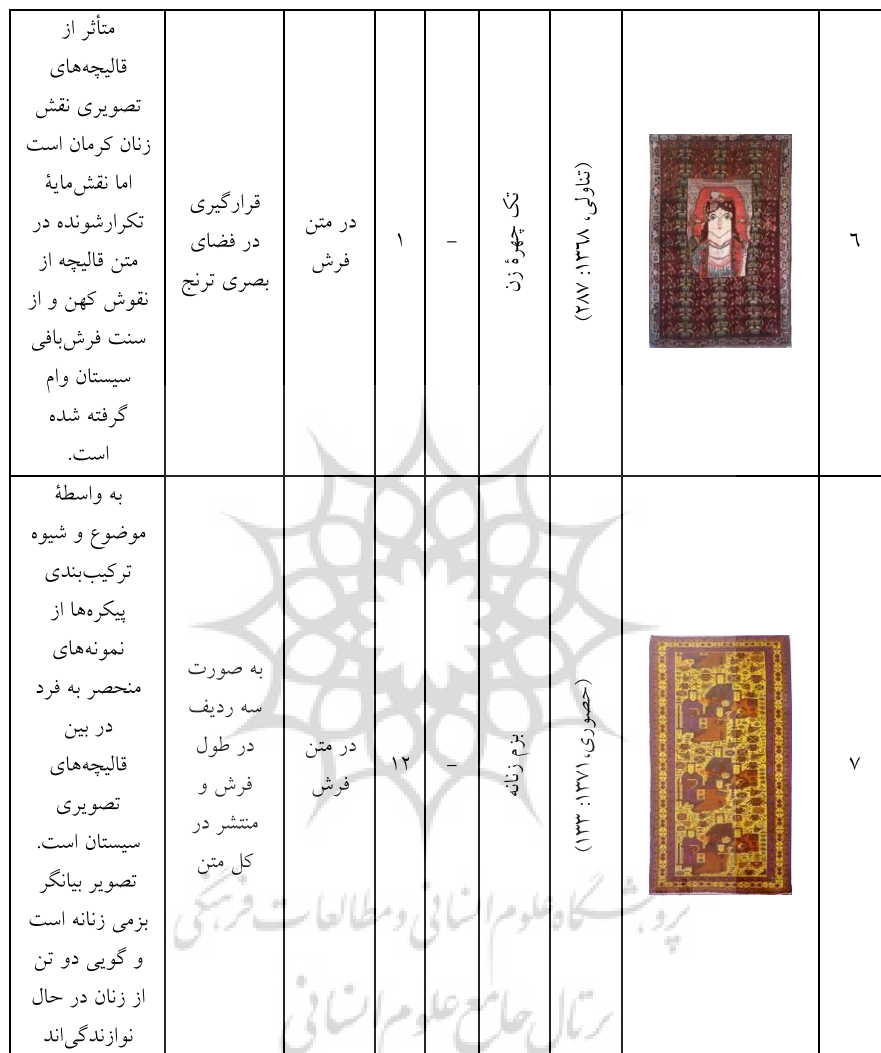 ٦
(تناولی، ١٣٦٨: ٢٨٧)
تک چهرهٔ زن
–
١
در متن
فرش
قرارگیری
در فضای
بصری ترنج
متأثر از
قالیچه‌های
تصویری نقش
زنان کرمان است
اما نقش‌مایهٔ
تکرارشونده در
متن قالیچه از
نقوش کهن و از
سنت فرش‌بافی
سیستان وام
گرفته شده
است.
٧
(حصوری، ١٣٧١: ١٣٣)
بزم زنانه
–
١٢
در متن
فرش
به صورت
سه ردیف
در طول
فرش و
منتشر در
کل متن
به واسطهٔ
موضوع و شیوه
ترکیب‌بندی
پیکره‌ها از
نمونه‌های
منحصر به فرد
در بین
قالیچه‌های
تصویری
سیستان است.
تصویر بیانگر
بزمی زنانه است
و گویی دو تن
از زنان در حال
نوازندگی‌اند
پژوهشگاه علوم انسانی و مطالعات فرهنگی
پرتال جامع علوم انسانی